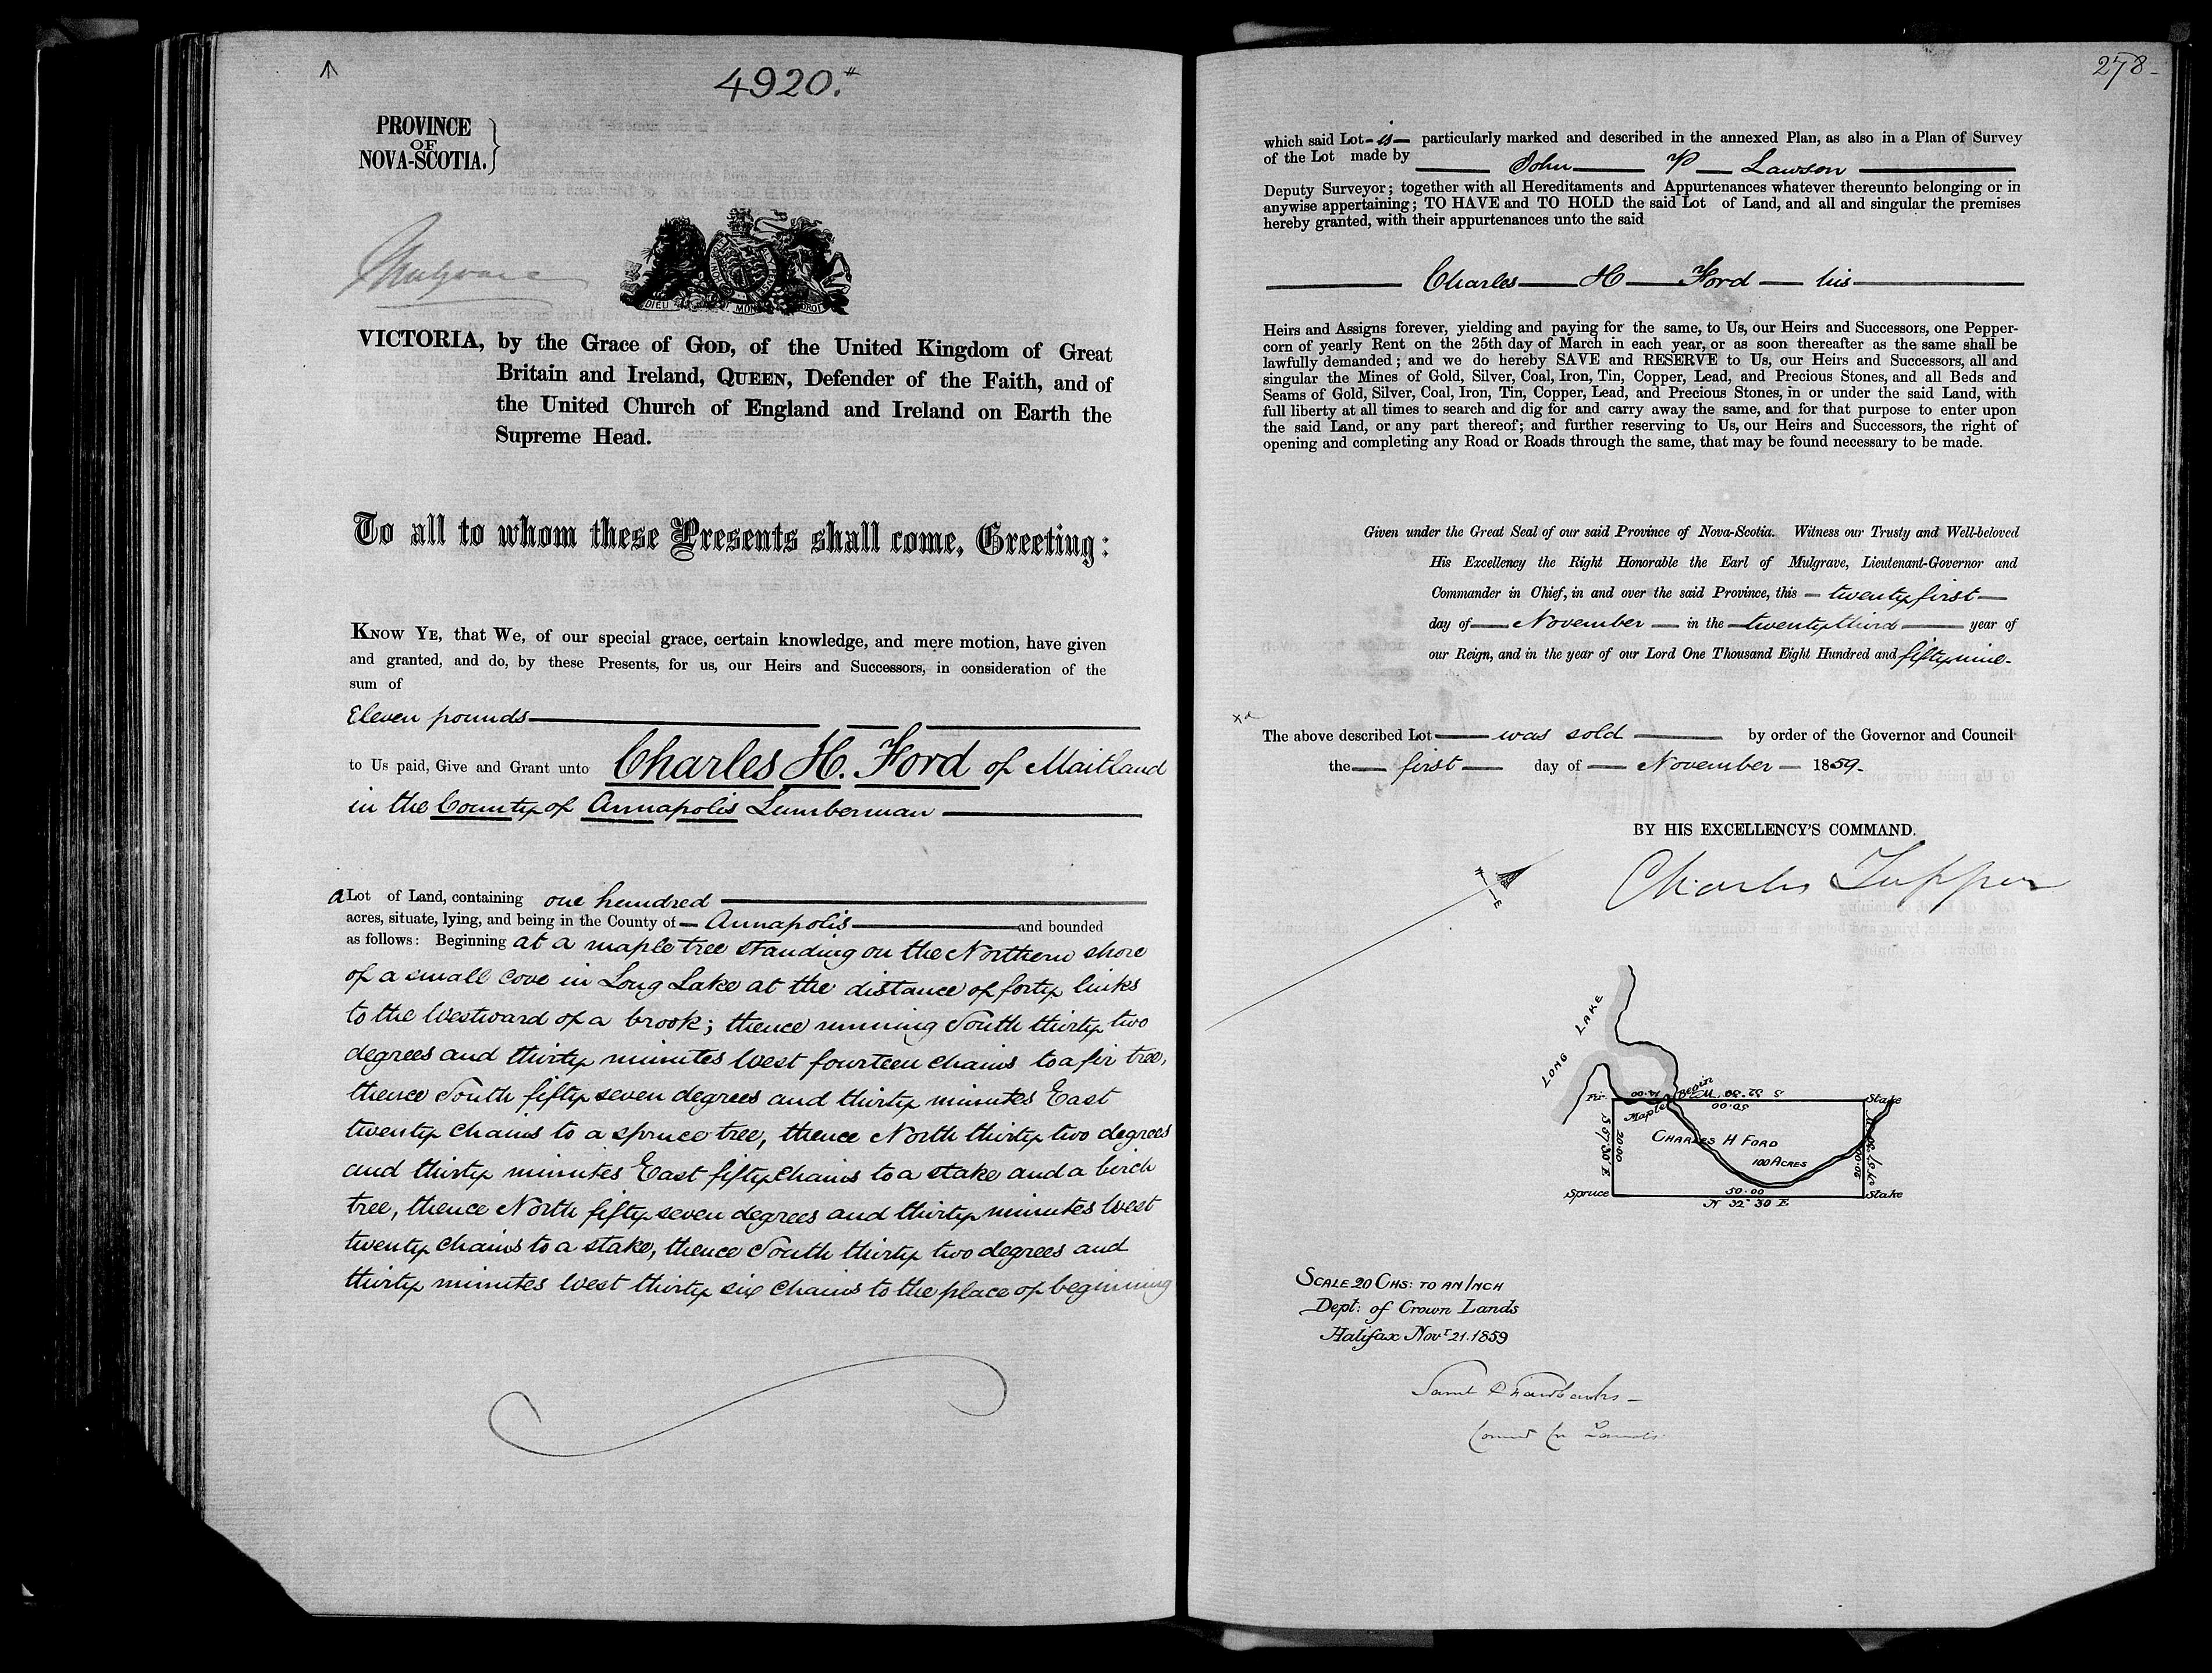 4920.
PROVINCE
OF
NOVA-SCOTIA.
Mulgrave
DIEU ET MON DROIT
VICTORIA, by the Grace of GOD, of the United Kingdom of Great
Britain and Ireland, QUEEN, Defender of the Faith, and of
the United Church of England and Ireland on Earth the
Supreme Head.
To all to whom these Presents shall come, Greeting:
KNOW YE, that We, of our special grace, certain knowledge, and mere motion, have given
and granted, and do, by these Presents, for us, our Heirs and Successors, in consideration of the
sum of
Eleven pounds
to Us paid, Give and Grant unto Charles H. Ford of Maitland
in the County of Annapolis Lumberman
a Lot of Land, containing one hundred
acres, situate, lying, and being in the County of Annapolis and bounded
as follows: Beginning at a maple tree standing on the Northern shore
of a small cove in Long Lake at the distance of forty links
to the Westward of a brook; thence running South thirty two
degrees and thirty minutes West fourteen chains to a fir tree,
thence South fifty seven degrees and thirty minutes East
twenty chains to a spruce tree, thence North thirty two degrees
and thirty minutes East fifty chains to a stake and a birch
tree, thence North fifty seven degrees and thirty minutes West
twenty chains to a stake, thence South thirty two degrees and
thirty minutes West thirty six chains to the place of beginning
278-
which said Lot - is - particularly marked and described in the annexed Plan, as also in a Plan of Survey
of the Lot made by
John P Lawson
Deputy Surveyor; together with all Hereditaments and Appurtenances whatever thereunto belonging or in
anywise appertaining; TO HAVE and TO HOLD the said Lot of Land, and all and singular the premises
hereby granted, with their appurtenances unto the said
Charles H Ford his
Heirs and Assigns forever, yielding and paying for the same, to Us, our Heirs and Successors, one Pepper-
corn of yearly Rent on the 25th day of March in each year, or as soon thereafter as the same shall be
lawfully demanded; and we do hereby SAVE and RESERVE to Us, our Heirs and Successors, all and
singular the Mines of Gold, Silver, Coal, Iron, Tin, Copper, Lead, and Precious Stones, and all Beds and
Seams of Gold, Silver, Coal, Iron, Tin, Copper, Lead, and Precious Stones, in or under the said Land, with
full liberty at all times to search and dig for and carry away the same, and for that purpose to enter upon
the said Land, or any part thereof; and further reserving to Us, our Heirs and Successors, the right of
opening and completing any Road or Roads through the same, that may be found necessary to be made.
Given under the Great Seal of our said Province of Nova-Scotia. Witness our Trusty and Well-beloved
His Excellency the Right Honorable the Earl of Mulgrave, Lieutenant-Governor and
Commander in Chief, in and over the said Province, this - twenty first -
day of November in the twenty third year of
our Reign, and in the year of our Lord One Thousand Eight Hundred and fifty nine.
The above described Lot was sold by order of the Governor and Council
the first day of November 1859.
BY HIS EXCELLENCY'S COMMAND.
Charles Tupper
E
LONG LAKE
Fir
14.00
Begin
S 32° 30 W
Stake
Maple
50.00
S 57° 30 E
20.00
CHARLES H FORD
100 ACRES
20.00
Spruce
50.00
Stake
N 32° 30 E
SCALE 20 CHS: TO AN INCH
Dept: of Crown Lands
Halifax Novr 21. 1859
Saml P Fairbanks
Commr Cn Lands